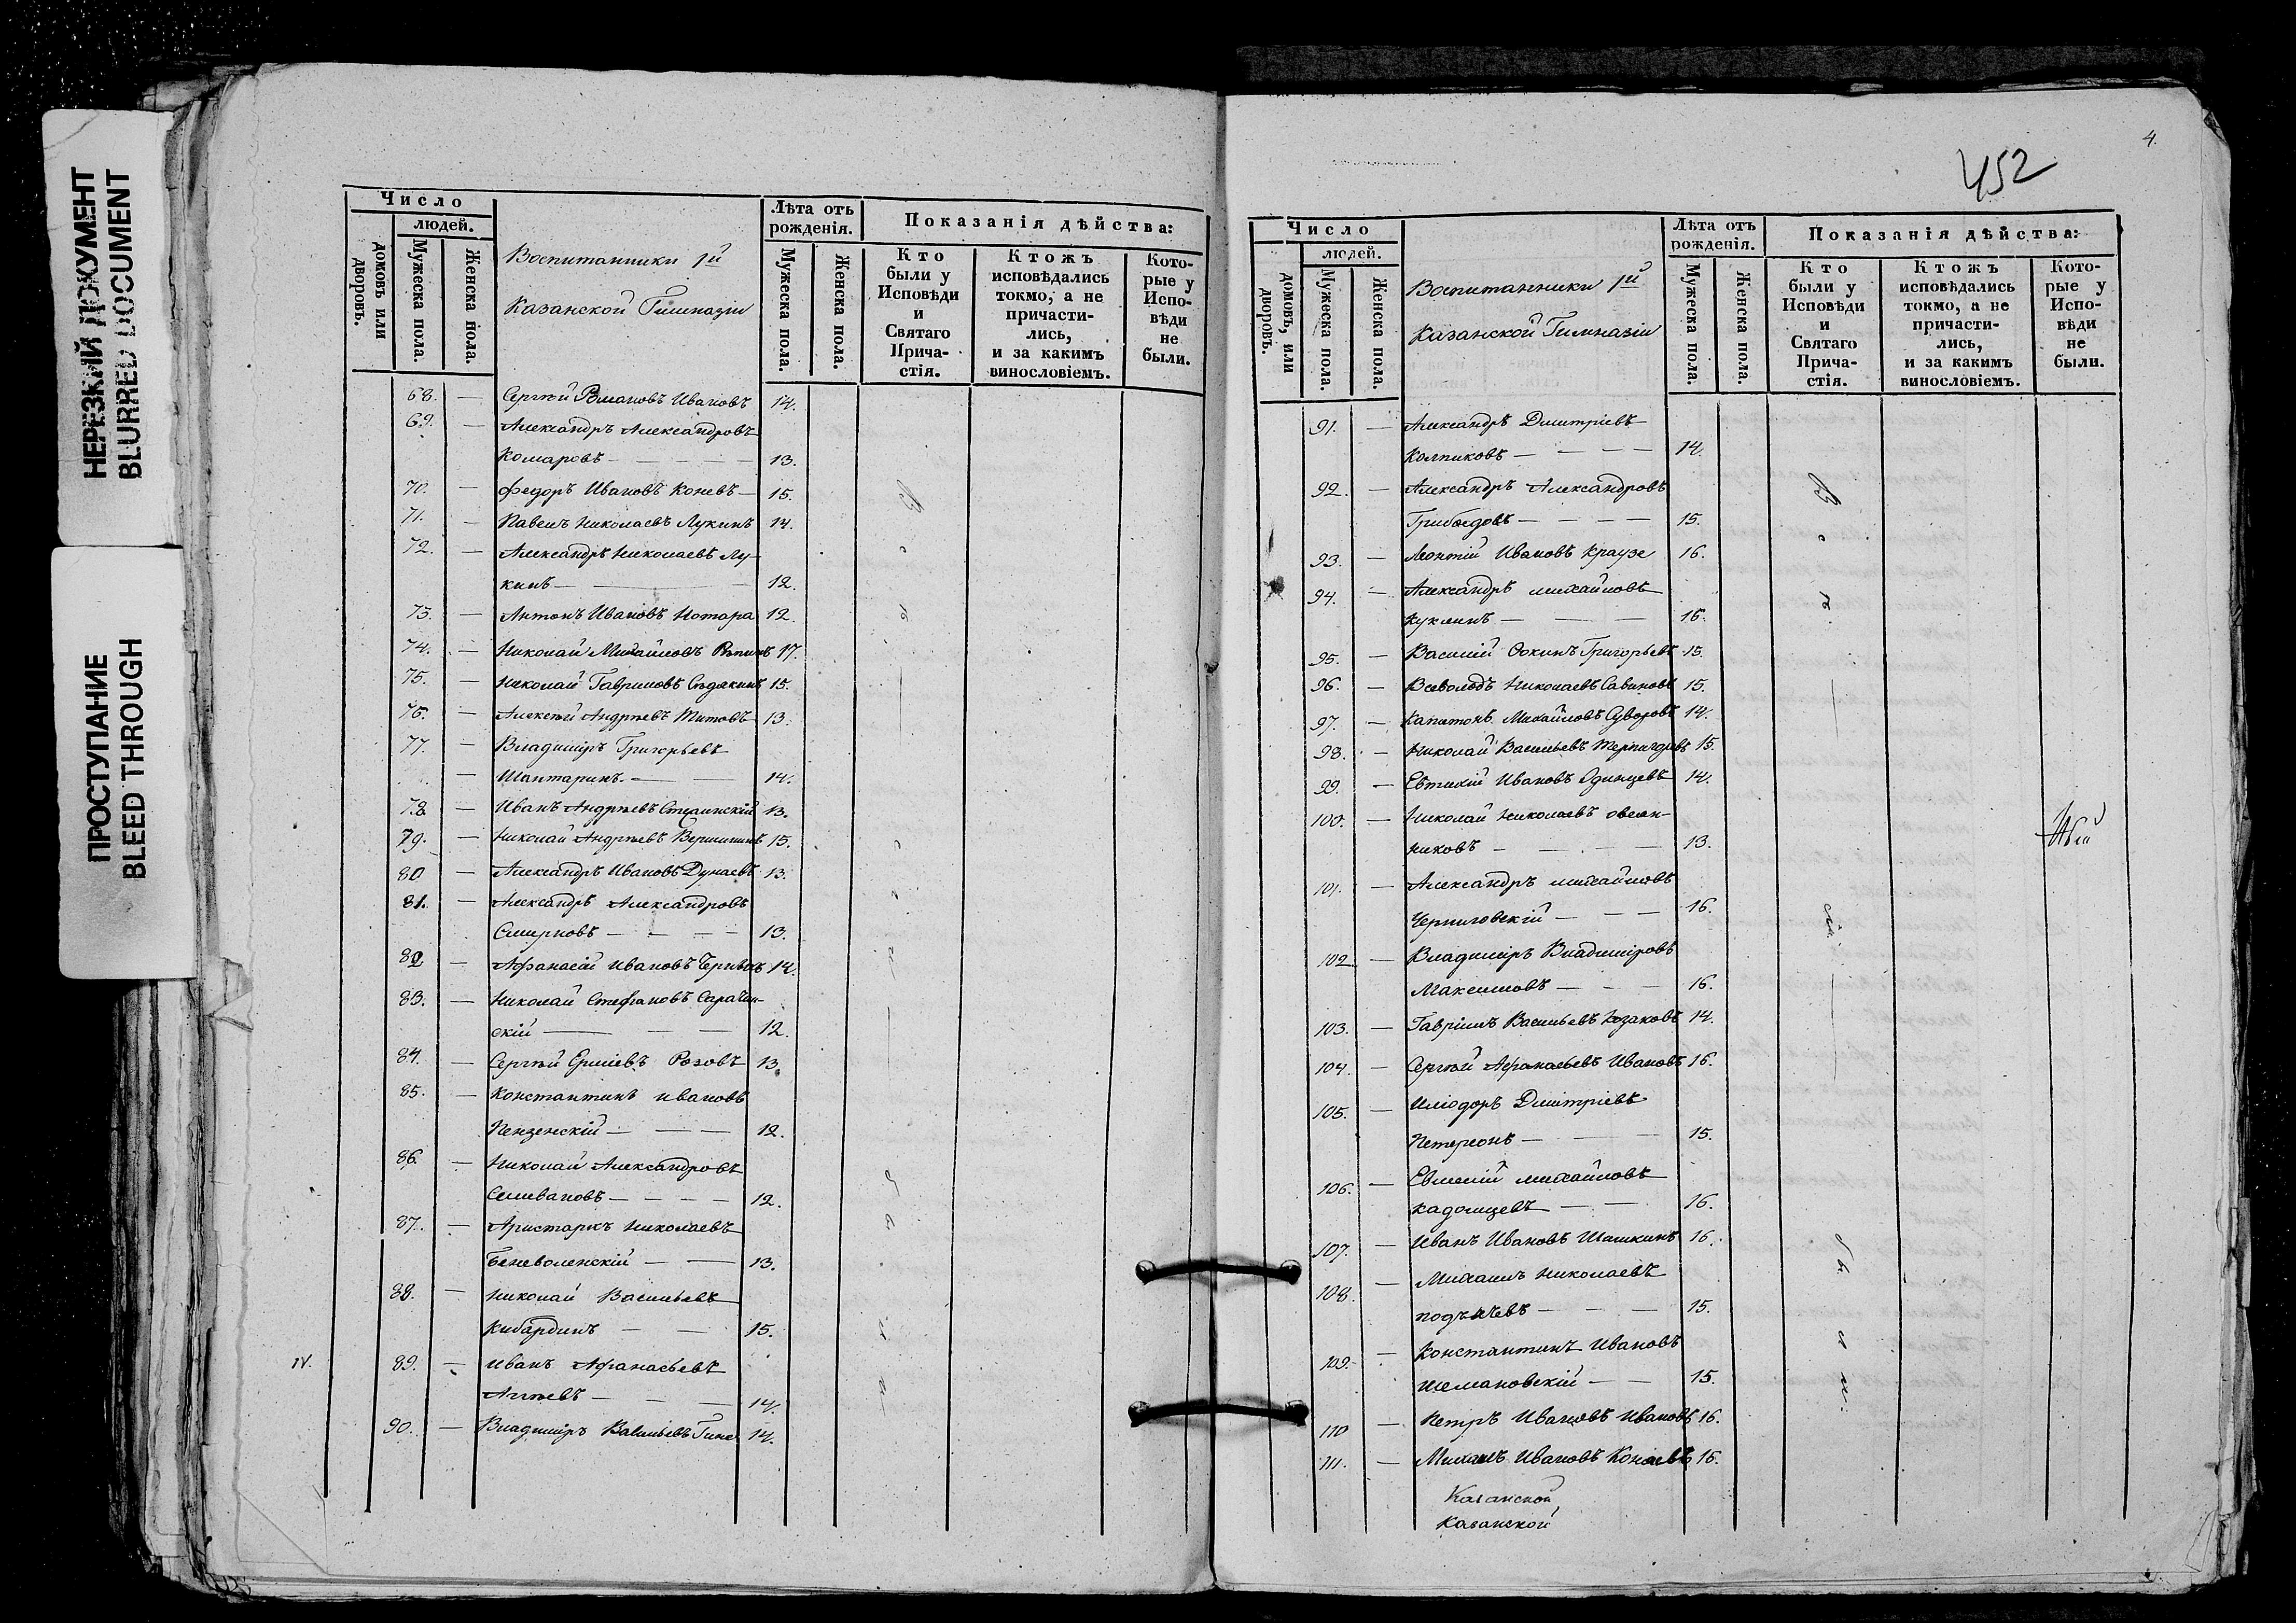 НЕРЕЗКИЙ ДОКУМЕНТ
BLURRED DOCUMENT
ПРОСТУПАНИЕ
BLEED THROUGH
Число
людей.
домовъ или дворовъ.
Мужеска пола.
Женска пола.
Воспитанники 1й
Казанской Гимназіи
Лѣта отъ рожденія.
Мужеска пола.
Женска пола.
Показанія дѣйства:
Кто были у Исповѣди и Святаго Причастія.
Ктожъ исповѣдались токмо, а не причастились, и за какимъ винословіемъ.
Которые у Исповѣди не были.
68. — Сергѣй Романовъ Ивановъ 14.
69. — Александръ Александровъ
Комаровъ — 13.
70. — Федоръ Ивановъ Коневъ — 15.
71. — Павелъ Николаевъ Лукинъ 14.
72. — Александръ Николаевъ Лу-
кинъ — 12.
73. — Антонъ Ивановъ Нотара 12.
74. — Николай Михайловъ Рѣпинъ 17.
75. — Николай Гавриловъ Сѣдякинъ 15.
76. — Алексѣй Андреевъ Титовъ 13.
77. — Владиміръ Григорьевъ
— Шантаринъ — 14.
78. — Иванъ Андреевъ 13.
79. — Николай Андреевъ Вершининъ 15.
80 — Александръ Ивановъ Дунаевъ 13.
81. — Александръ Александровъ
Смирновъ — 13.
82 — Афанасій Ивановъ 14.
83. — Николай Стефановъ Сарачин-
скій — 12.
84. — Сергѣй Розовъ 13.
85. — Константинъ Ивановъ
Пензенскій — 12.
86. — Николай Александровъ
Селивановъ — 12.
87. — Аристархъ Николаевъ
Беневоленскій — 13.
88. — Николай Васильевъ
Кибардинъ — 15.
IV.
89. — Иванъ Афанасьевъ
Агѣевъ — 14.
90. — Владиміръ Васильевъ 14.
4.
452
Число
людей.
домовъ, или дворовъ.
Мужеска пола.
Женска пола.
Воспитанники 1й
Казанской Гимназіи
Лѣта отъ рожденія.
Мужеска пола.
Женска пола.
Показанія дѣйства:
Кто были у Исповѣди и Святаго Причастія.
Ктожъ исповѣдались токмо, а не причастились, и за какимъ винословіемъ.
Которые у Исповѣди не были.
91. — Александръ Дмитріевъ
Колпиковъ — 14.
92. — Александръ Александровъ
Грибоѣдовъ — 15.
93. — Леонтій Ивановъ Краузе 16.
94. — Александръ Михайловъ
Куклинъ — 16.
95. — Василій Фокинъ Григорьевъ 15.
96. — Всеволодъ Николаевъ Савиновъ 15.
97. — Капитонъ Михайловъ Суворовъ 14.
98. — Николай Васильевъ 15.
99. — Евтихій Ивановъ Одинцевъ 14.
100. — Николай Николаевъ Овсян-
никовъ — 13.
101. — Александръ Михайловъ
Черниговскій — 16.
102 — Владиміръ Владиміровъ
Максимовъ — 16.
103. — Гавріилъ Васильевъ Казаковъ 14.
104. — Сергѣй Афанасьевъ Ивановъ 16.
105. — Иліодоръ Дмитріевъ
Петерсонъ — 15.
106. — Евменій Михайловъ
Кадомцевъ — 16.
107. — Иванъ Ивановъ Шашкинъ 16.
108. — Михаилъ Николаевъ
Подъячевъ — 15.
109. — Константинъ Ивановъ
Шемановскій — 15.
110 — Петръ Ивановъ Ивановъ 16.
111. — Михаилъ Ивановъ Коняевъ 15.
Казанской
Казанской